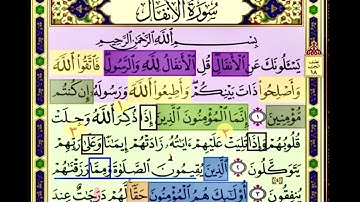 سُورَةُ الأَنْفَالِ
بِسْمِ اللَّهِ الرَّحْمَٰنِ الرَّحِيمِ
يَسْـَٔلُونَكَ عَنِ الْأَنْفَالِ قُلِ الْأَنْفَالُ لِلَّهِ وَالرَّسُولِ فَاتَّقُوا اللَّهَ
وَأَصْلِحُوا ذَاتَ بَيْنِكُمْ وَأَطِيعُوا اللَّهَ وَرَسُولَهُ إِنْ كُنْتُمْ
مُؤْمِنِينَ ١ إِنَّمَا الْمُؤْمِنُونَ الَّذِينَ إِذَا ذُكِرَ اللَّهُ وَجِلَتْ
قُلُوبُهُمْ وَإِذَا تُلِيَتْ عَلَيْهِمْ ءَايَٰتُهُ زَادَتْهُمْ إِيمَٰنًا وَعَلَىٰ رَبِّهِمْ
يَتَوَكَّلُونَ ٢ الَّذِينَ يُقِيمُونَ الصَّلَوٰةَ وَمِمَّا رَزَقْنَٰهُمْ
يُنْفِقُونَ ٣ أُولَٰئِكَ هُمُ الْمُؤْمِنُونَ حَقًّا لَهُمْ دَرَجَٰتٌ عِنْدَ